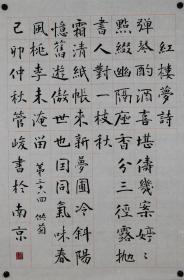 紅樓夢詩
彈琴酌酒喜堪儔幾案婷婷
點綴幽隔座香分三徑露抛
書人對一枝秋
霜清紙帳來新夢圃冷斜陽
憶舊遊傲世也因同氣味春
風桃李未淹留
供菊
己卯仲秋管峻書於南京